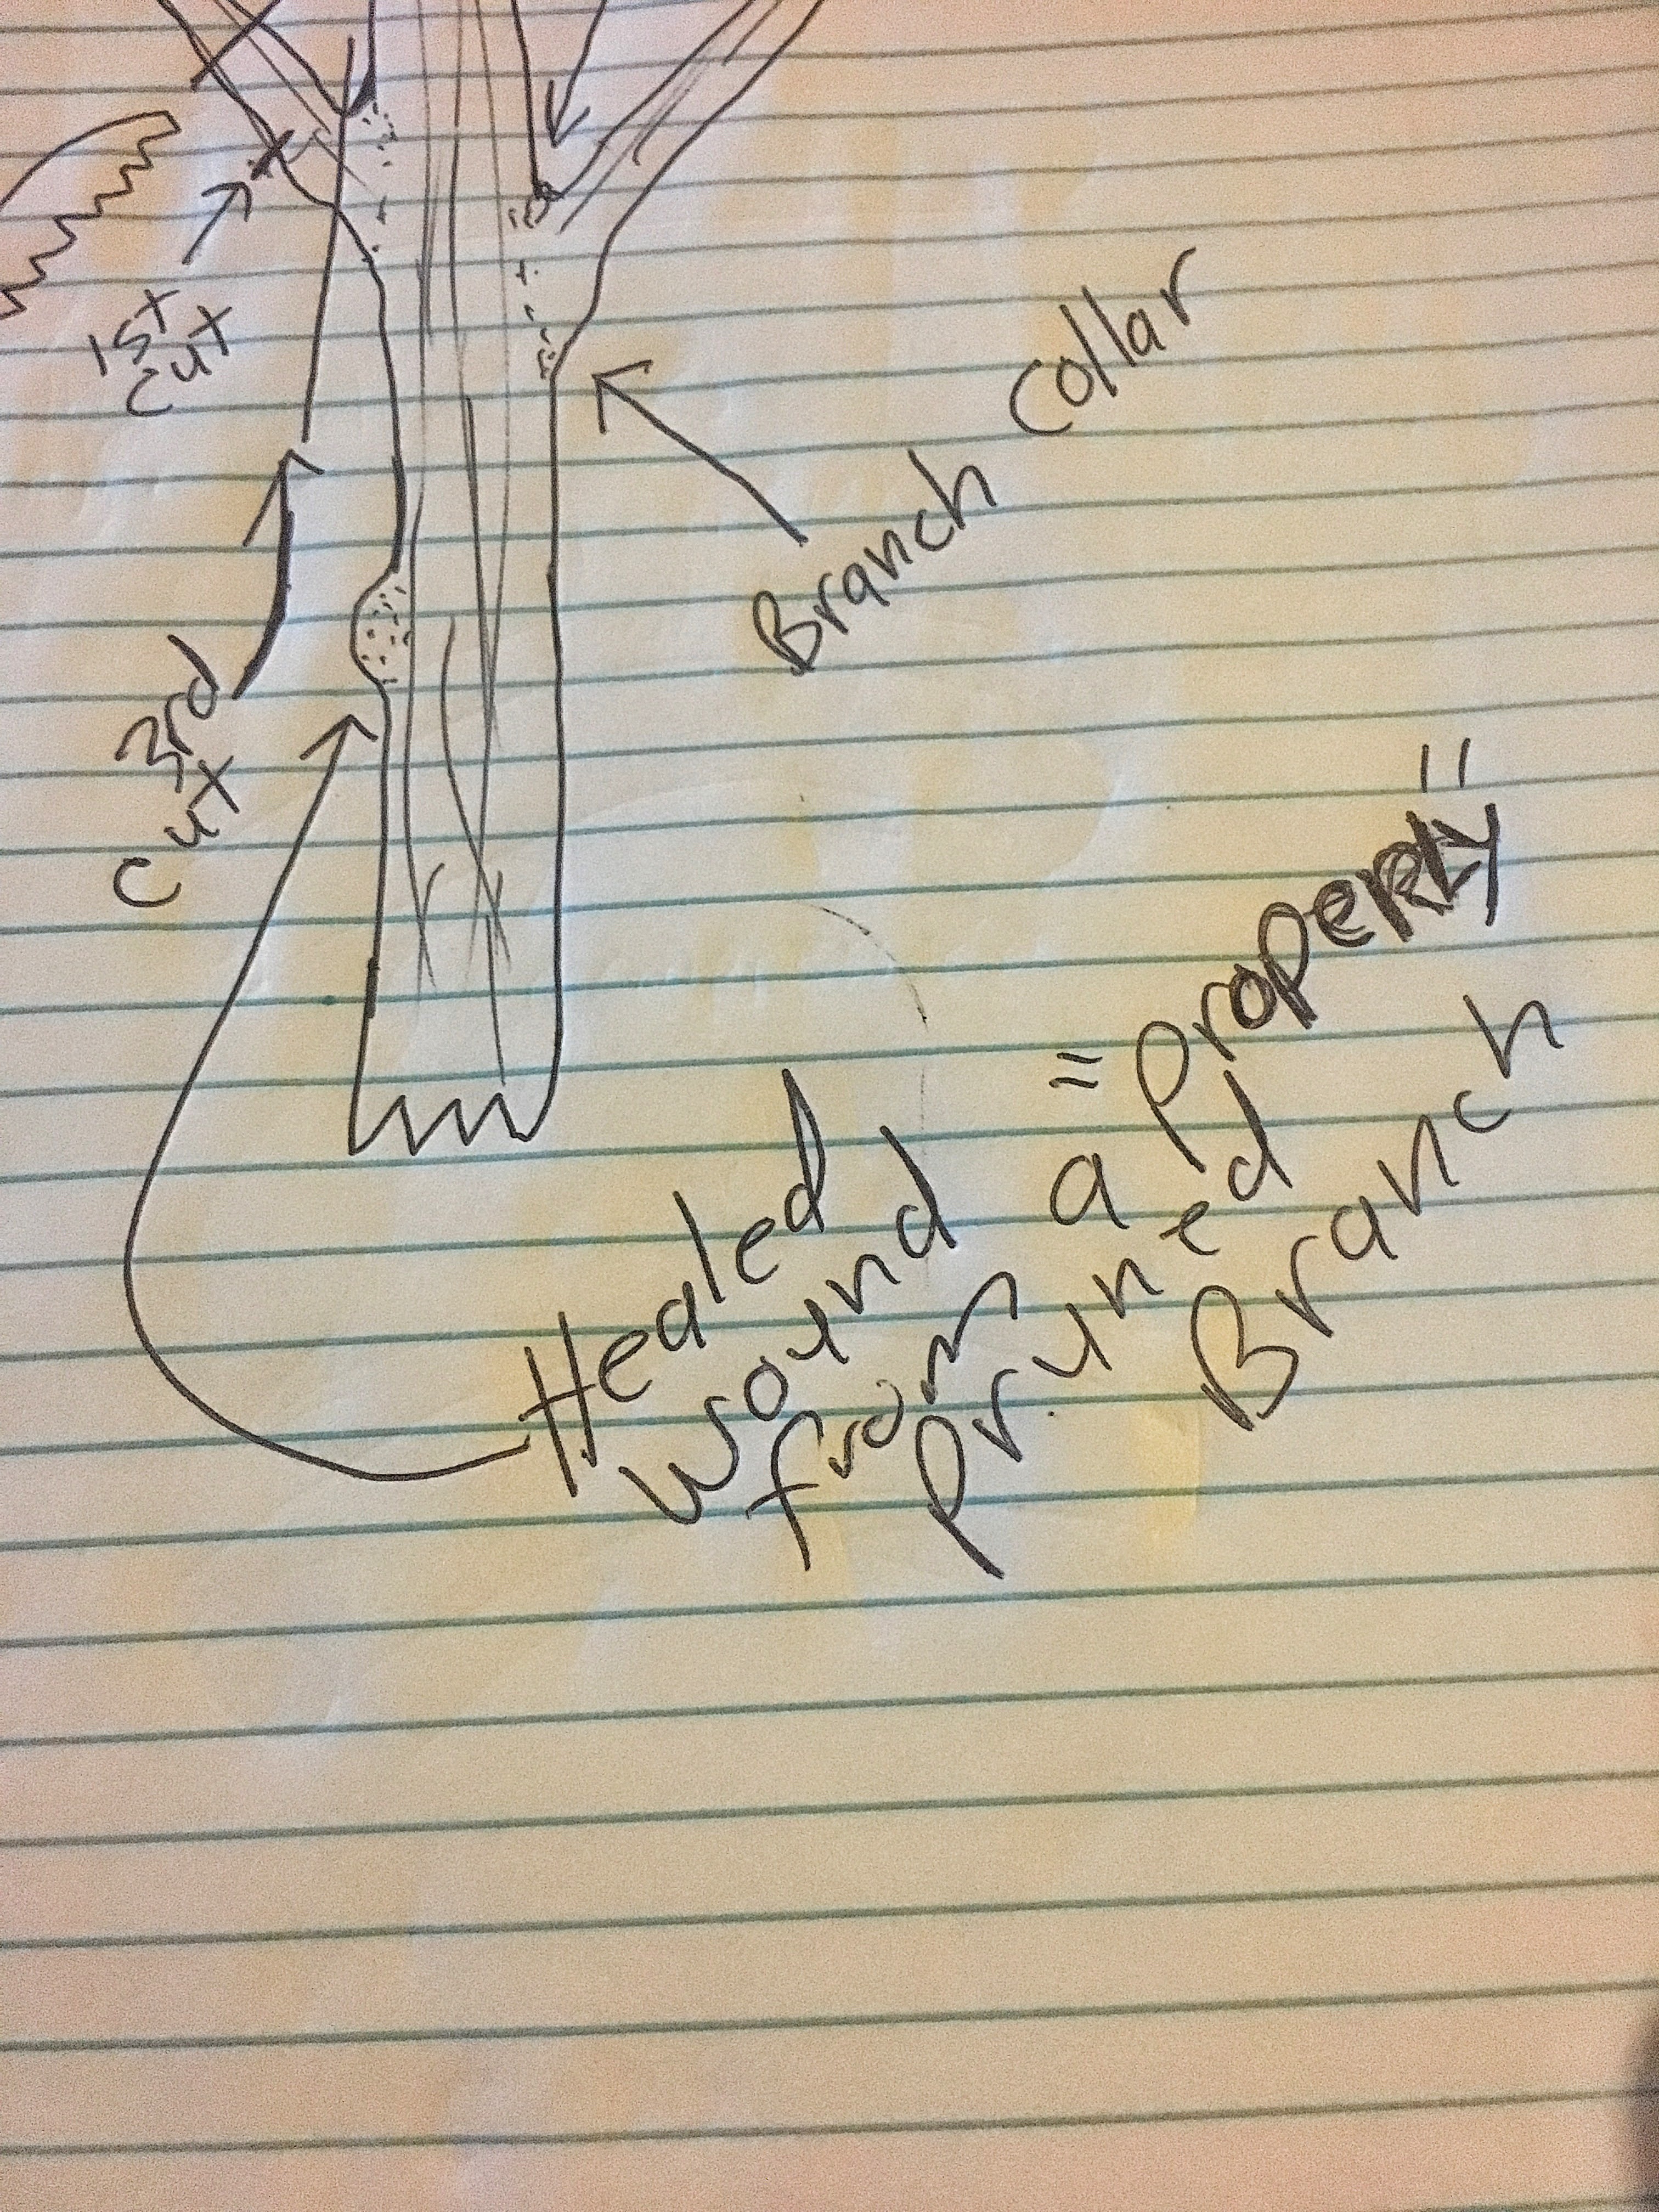 1st
cut
Branch Collar
3rd
cut
Healed
wound
from a "Properly"
Pruned
Branch